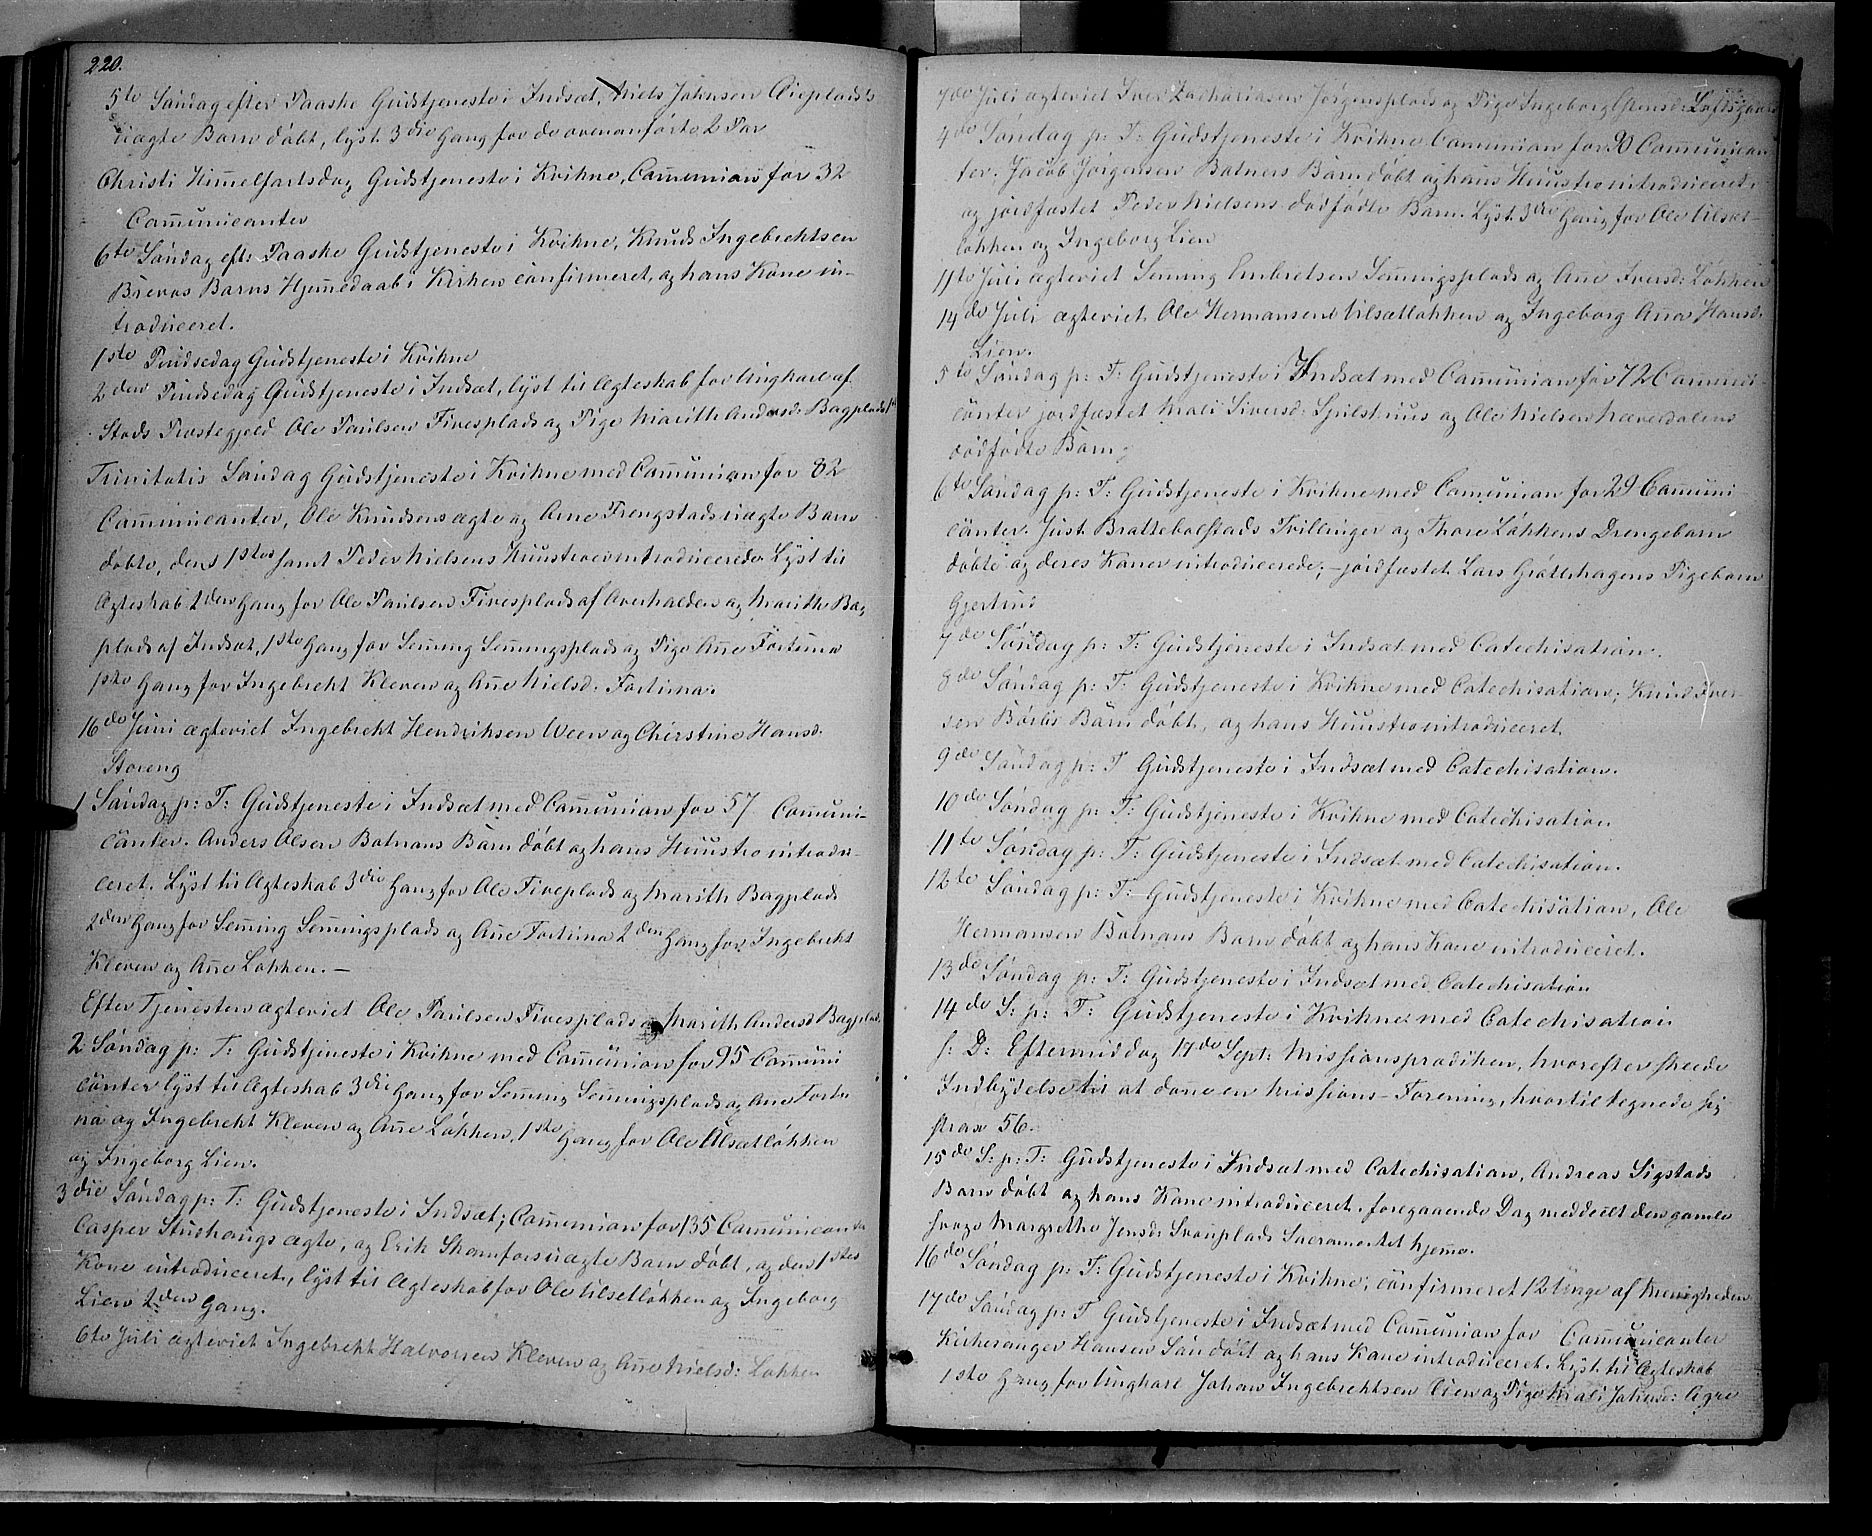 220.
5te Søndag efter Paaske Gudstjeneste i Indsæt, Niels Johnsen
uægte Barn døbt, lyst 3die Gang for de ovenanførte 2 Par
Christi Himmelfartsdag Gudstjeneste i Kvikne, Communion for 32
Communicanter
6te Søndag eft: Paaske Gudstjeneste i Kvikne, Knud Ingebrechtsen
Brevas Barns Hjemmedaab i Kirken confirmeret, og hans Kone in-
troduceret.
1ste Pindsedag Gudstjeneste i Kvikne
2den Pindsedag Gudstjeneste i Indsæt, lyst til Ægteskab for Ungkarl af
Præstegjeld Ole Paulsen Fivesplads og Pige Marith Andersd: Bagplads 1st
Trinitatis Søndag Gudstjeneste i Kvikne med Communion for 82
Communicanter, Ole Knudsens ægte og Arne Trengstads uægte Barn
døbte, den 1stes samt Peder Nielsens Huustroer introducerede. Lyst til
Ægteskab 2den Gang for Ole Paulsen Fivesplads af Overhalden og Marith Bag-
plads af Indsæt, 1ste Gang for Semming Semmingsplads og Pige Ane Fortuna
1ste Gang for Ingebrekt Kleven og Ane Nielsd: Fortuna.
16de Juni ægteviet Ingebrekt Hendriksen Ween og Chirstine Hansd.
Storeng
1 Søndag p: T: Gudstjeneste i Indsæt med Communion for 57 Communi-
canter. Anders Olsen Volnans Barn døbt og hans Huustro introdu-
ceret. Lyst til Ægteskab 3die Gang for Ole Fiveplads og Marith Bagplads
2den Gang for Semming Semmingsplads og Ane Fortuna 2den Gang for Ingebrekt
Kleven og Ane Løkken. –
Efter Tjenesten ægteviet Ole Paulsen Fivesplads og Marith Andersd Bagplads
2 Søndag p: T: Gudstjeneste i Kvikne med Communion for 95 Communi
canter lyst til Ægteskab 3die Gang for Semming Semmingsplads og Ane Fortu
na og Ingebrekt Kleven og Ane Løkken, 1ste Gang for Ole Ulsætløkken
og Ingeborg Lien.
3die Søndag p: T: Gudstjeneste i Indsæt; Communion for 135 Communicanter
Casper Stuehougs ægte, og Erik uægte Barn døbt, og den 1stes
Kone introduceret, lyst til Ægteskab for Ole Ulsetløkken og Ingeborg
Lien 2den Gang.
6te Juli ægteviet Ingebrekt Halvorsen Kleven og Ane Nielsd: Løkken
7de Juli ægteviet Iver Zachariasen Jørgensplads og Pige Ingeborg Loftsgaard
4de Søndag p: T: Gudstjeneste i Kvikne Communion for 90 Communican
ter, Jacob Jørgensen Volnens Barn døbt og hans Huustro introduceret,
og jordfæstet Peder Nielsens dødfødte Barn. Lyst 3die Gang for Ole Ulsæt-
løkken og Ingeborg Lien
11te Juli ægteviet Semming Embretsen Semmingsplads og Ane Iversd: Løkken
14de Juli ægteviet Ole Hermansen Ulsætløkken og Ingeborg Ana Hansd.
Lien.
5te Søndag p: T: Gudstjeneste i Indsæt med Communion for 72 Communi-
canter jordfæstet Mali Siversd: Spilshuus og Ole Nielsen Næverdalens
dødfødte Barn;
6te Søndag p: T: Gudstjeneste i Kvikne med Communion for 29 Communi
canter. Just Brattebolstads Tvillinger og Thore Løkkens Drengebarn
døbte og deres Koner introducerede; – jordfæstet Lars Gråtthagens Pigebarn
Gjertrud
7de Søndag p: T: Gudstjeneste i Indsæt med Catechisation.
8de Søndag p: T: Gudstjeneste i Kvikne med Catechisation; Knud Iver-
sen Børlis Barn døbt, og hans Huustro introduceret.
9de Søndag p: T Gudstjeneste i Indsæt med Catechisation.
10de Søndag p: T: Gudstjeneste i Kvikne med Catechisation
11te Søndag p: T: Gudstjeneste i Indsæt med Catechisation.
12te Søndag p: T: Gudstjeneste i Kvikne med Catechisation, Ole
Hermansen Volnans Barn døbt og hans Kone introduceret.
13de Søndag p: T: Gudstjeneste i Indsæt med Catechisation
14de S: p: T: Gudstjeneste i Kvikne med Catechisation
s: D: Eftermiddag 17de Sept: Missionsprædiken, hvorefter skeede
Indbydelse til at danne en Missions-Forening, hvortil tegnede sig
strax 56.
15de S: p: T: Gudstjeneste i Indsæt med Catechisation, Andreas Sigstads
Barn døbt og hans Kone introduceret, foregaaende Dag meddeelt den gamle
svage Margrethe Jensd: Sacramentet hjemme.
16de Søndag p: T: Gudstjeneste i Kvikne; confirmeret 12 Unge af Menigheden
17de Søndag p: T Gudstjeneste i Indsæt med Communion for Communicanter
Kirkesanger Hansen Søn døbt og hans Kone introduceret. Lyst til Ægteskab
1ste Gang for Ungkarl Johan Ingebrechtsen Lien og Pige Mali Johnsd: Agre